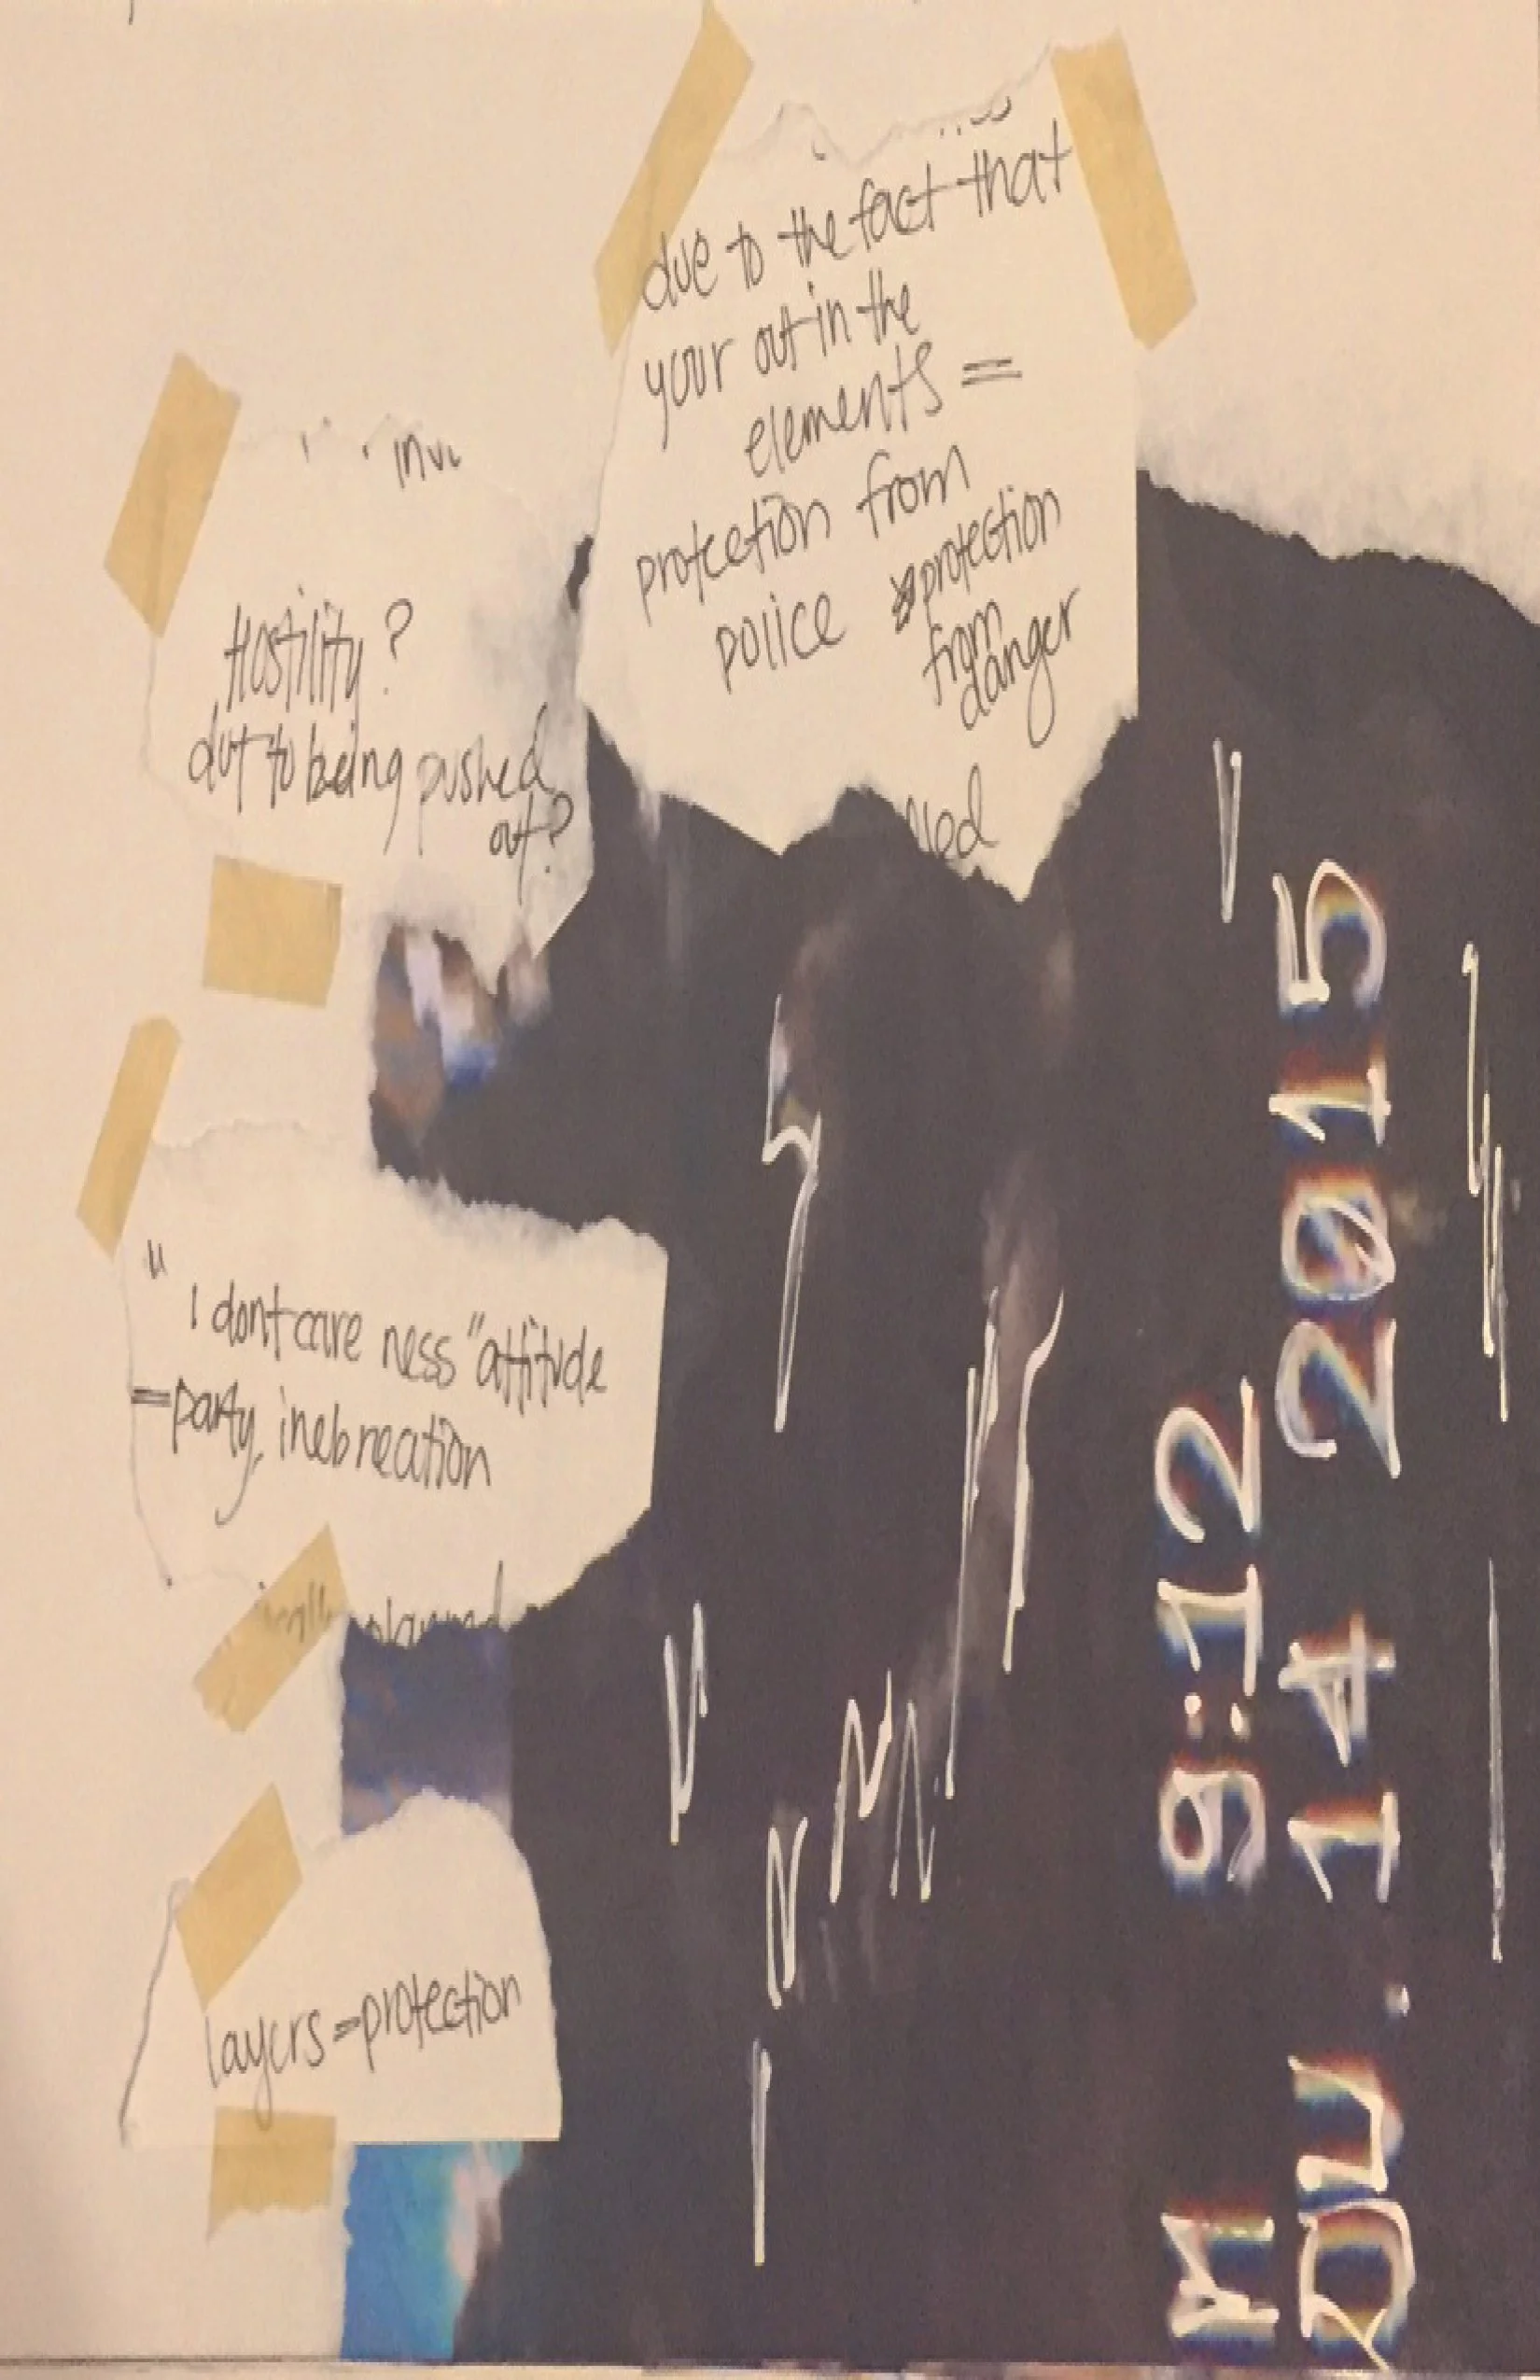 due to the fact that
your out in the
elements =
protection from
police protection
from
danger
Hostility?
dut to being pushed
out?
"I dont care ness" attitude
= party, inebreation
planned
layers = protection
9:12
14 2015